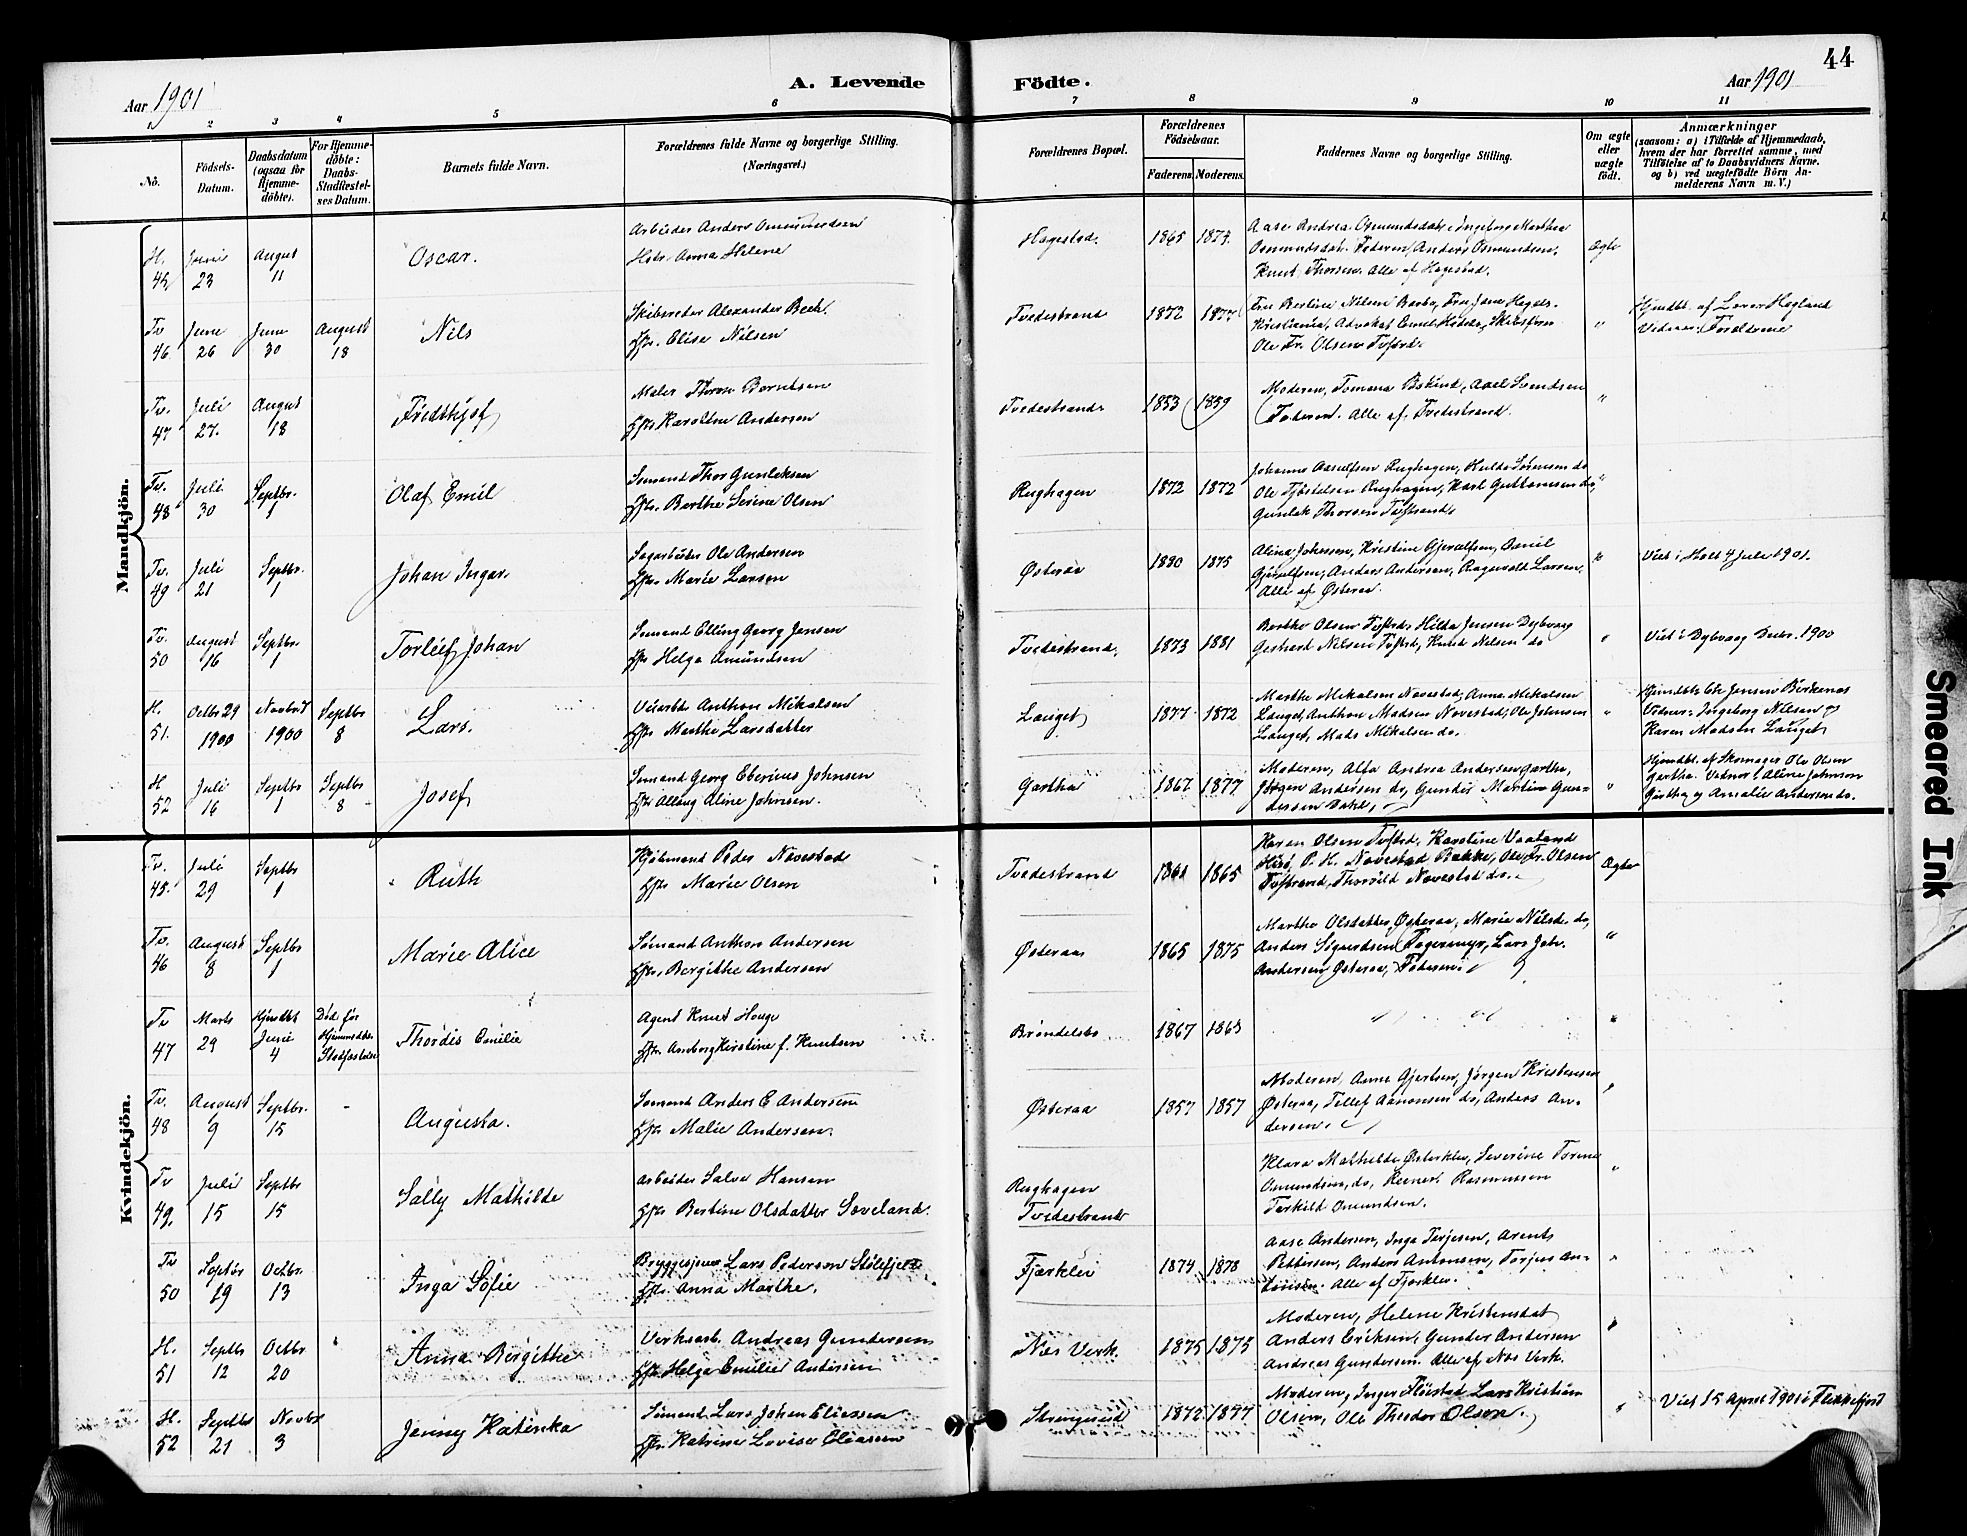 44
Aar 1901
A. Levende Födte.
Aar 1901
1 2 3 4 5 6 7 8 9 10 11
No.
Födsels-
Datum.
Daabsdatum
(ogsaa for
Hjemme-
döbte).
For Hjemme-
döbte:
Daabs-
Stadfæstel-
ses Datum.
Barnets fulde Navn.
Forældrenes fulde Navne og borgerlige Stilling.
(Næringsvei.)
Forældrenes Bopæl.
Forældrenes
Födselsaar.
Faderens. Moderens.
Faddernes Navne og borgerlige Stilling.
Om ægte
eller
uægte
födt.
Anmærkninger
(saasom: a) i Tilfælde af Hjemmedaab,
hvem der har forrettet samme, med
Tilföielse af to Daabsvidners Navne.
og b) ved uægtefödte Börn An-
melderens Navn m. V.)
Mandkjön.
H. 45 Juni 23 August 11
Oscar.
Arbeider Anders Omundsen
Hstr. Anna Helene
Hagestad. 1865 1874
Aase Andrea Osmundsdat., Ingeborg Marthea
Osmundsdat. Faderen, Anders Osmundsen,
Knut Thorsen. Alle af Hagestad.
Ægte
Tv 46. Juni 26 Juni 30 August 18
Nils
Skibsreder Alexander Bech.
Hstr. Elise Nilsen
Tvedestrand 1872 1877
Fru Bertine Nilsen Barbo, Fru Jane
Kristiania, Advokat Emil Skibsfører
Ole Fr. Olsen Tvestrd.
"
Hjmdbt. af Lærer Hogland
Vidner: Forældrene
Tv. 47 Juli 27. August 18
Fridthjof
Maler Thorvn Berntsen
Hstr Karoline Andersen
Tvedestrand 1853 1859
Moderen, Tomana Axel Svendsen
Faderen. Alle af Tvedestrand.
"
Tv. 48 Juli 30 Septbr. 1
Olaf Emil
Sømand Thor Gunleksen
Hstr. Berthe Serine Olsen
Rughagen 1872 1872
Johanne Aasulfsen Rughagen, Hulda Sørensen do
Ole Tjøstelsen Rughagen, Karl Guttormsen do,
Gunlek Thorsen Tvestrand.
"
Tv. 49 Juli 21 Septbr. 1
Johan Ingar.
Sagarbeider Ole Andersen
Hstr Marie Larsen
Østeraa 1880 1875
Alina Johnsen, Kristine Gjerulfsen, Daniel
Gjerulfsen, Anders Andersen, Ragnvald Larsen.
Alle af Østeraa.
"
Viet i Holt 4 Juli 1901.
Tv. 50 August 16 Septbr. 1
Torleif Johan
Sømand Elling Georg Jensen
Hstr Helga Amundsen
Tvedestrand. 1873 1881
Berthe Olsen Tvestrd, Hilda Jensen Dybvaag
Gerhard Nilsen Tvestrd, Knud Nilsen do
"
Viet i Dybvaag Decbr. 1900
H. 51. Octbr 29 1900 Novbr 1 1900 Septbr 8
Lars.
Veiarb. Anthon Mikalsen
Hstr Marthe Larsdatter
Lauget 1877 1872
Marthe Mikalsen Navestad, Anna Mikalsen
Lauget, Anthon Madsen Navestad, Ole Johnsen
Lauget, Mads Mikalsen do.
"
Hjmdbt. Jensen Birkenæs
Vidner: Ingeborg Nilsen og
Karen Madsen Lauget
H 52 Juli 16 Septbr 1 Septbr 8
Josef
Sømand Georg Eberius Johnsen
Hstr Allaug Aline Johnsen.
Gartha 1867 1877
Moderen, Alfa Andrea Andersen Gartha,
Jørgen Andersen do, Gunder Martin Gun-
dersen Dahl,
"
Hjmdbt. af Skomager Ole Olsen
Gartha. Vidner: Aline Johnsen
Gartha og Amalie Andersen do.
Kvindekjön.
Tv. 45. Juli 29 Septbr 1
Ruth
Kjøbmand Peder Navestad
Hstr Marie Olsen
Tvedestrand 1861 1865
Karen Olsen Tvestrd, Karoline Vaaland
Hisø, P. H. Navestad Bakke, Ole Fr. Olsen
Tvestrand, Thorvild Navestad do.
Ægte
Tv. 46 August 8 Septbr 1
Marie Alice
Sømand Anthon Andersen
Hstr. Bergithe Andersen
Østeraa 1865 1875
Marthe Olsdatter Østeraa, Maria Nilsd. do,
Anders Sigurdsen Fagermyr, Lars Joh.
Andersen Østeraa, Faderen.
"
Tv 47 Marts 29 Hjmdbt Juni 4
Død før
Hjemmedbs.
Stadfæstelse
Thordis Emilie
Agent Knut Houge
Hstr. Amborg Kirstine f. Knutsen
Brøndelsbo 1867 1863
"
Tv. 48 August 9 Septbr. 15
Augusta.
Sømand Anders E Andersen
Hstr Malie Andersen.
Østeraa 1857 1857
Moderen, Anne Gjertsen, Jørgen Kristensen
Østeraa, Tellef Aanonsen do, Anders An-
dersen.
"
Tv 49. Juli 15 Septbr 15
Sally Mathilde
Arbeider Salve Hansen
Hstr Bertine Olsdatter Søveland.
Rughagen
Tvedestrand
Klara Mathilde Østerklev, Severine Torine
Omundsen, do, Reinert Rasmussen
Terkild Omundsen.
"
Tv 50 Septbr 19 Octbr. 13
Inga Sofie
Bryggesjouer Lars Pederson Stølefjeld
Hstr. Anna Marthe.
Fjærklev 1874 1878
Aase Andersen, Inga Terjesen, Arent
Pettersen, Anders Antonsen, Torjus An-
tonsen. Alle af Fjærklev.
"
H. 51 Septbr 12 Octbr 20
Anna Bergithe
Verksarb. Andreas Gundersen
Hstr Helga Emilie Andersen
Næs Verk. 1875 1875
Moderen, Helene Kristensdat
Anders Eriksen, Gunder Andersen
Andreas Gundersen. Alle af Næs Verk.
"
H. 52 Septbr 21 Novbr 3
Jenny Katinka
Sømand Lars Johan Eliassen
Hstr. Katrine Lovise Eliassen
Strengereid 1872 1877
Moderen, Inger Fløistad Lars Kristian
Olsen, Ole Theodor Olsen.
"
Viet 15 April 1901 i Flekkefjord
Smeared Ink